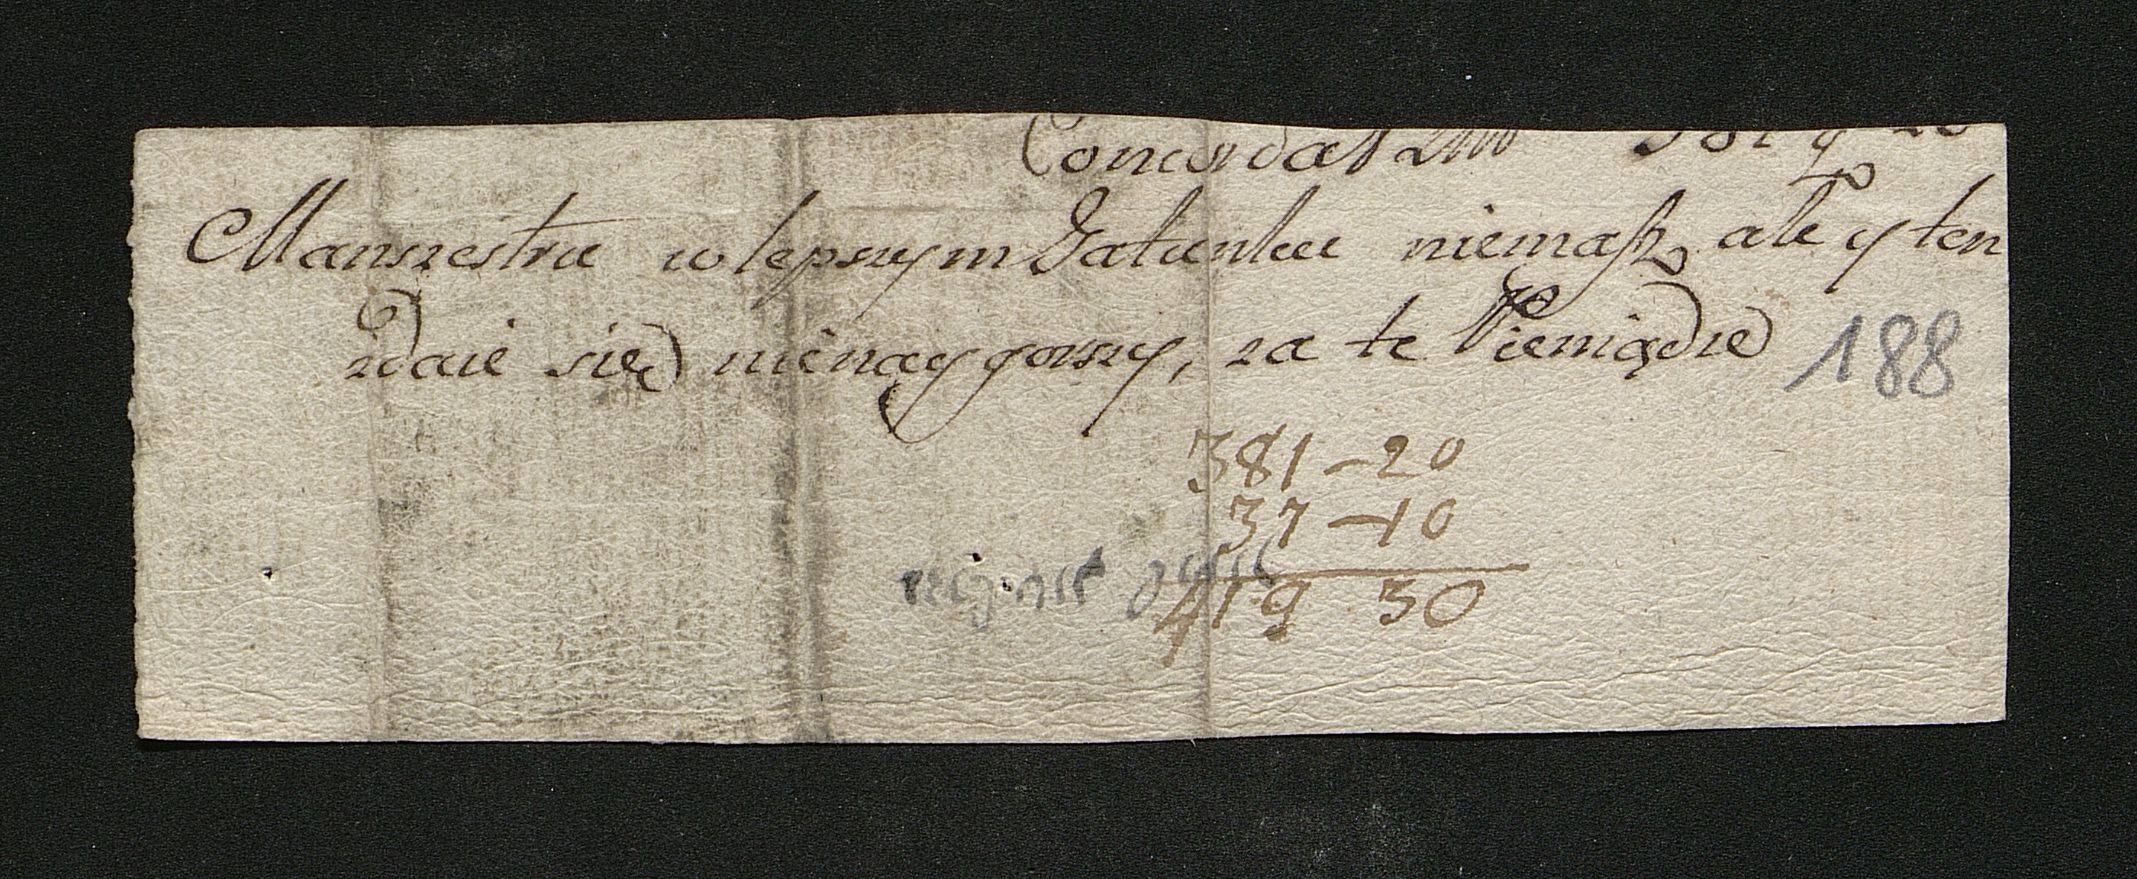 Manszestru w lepszym Gatunku niemaſz, ale y ten
zdaie się nienaygorszy, za te Pieniądze
188
381 - 20
37 - 10
419 30